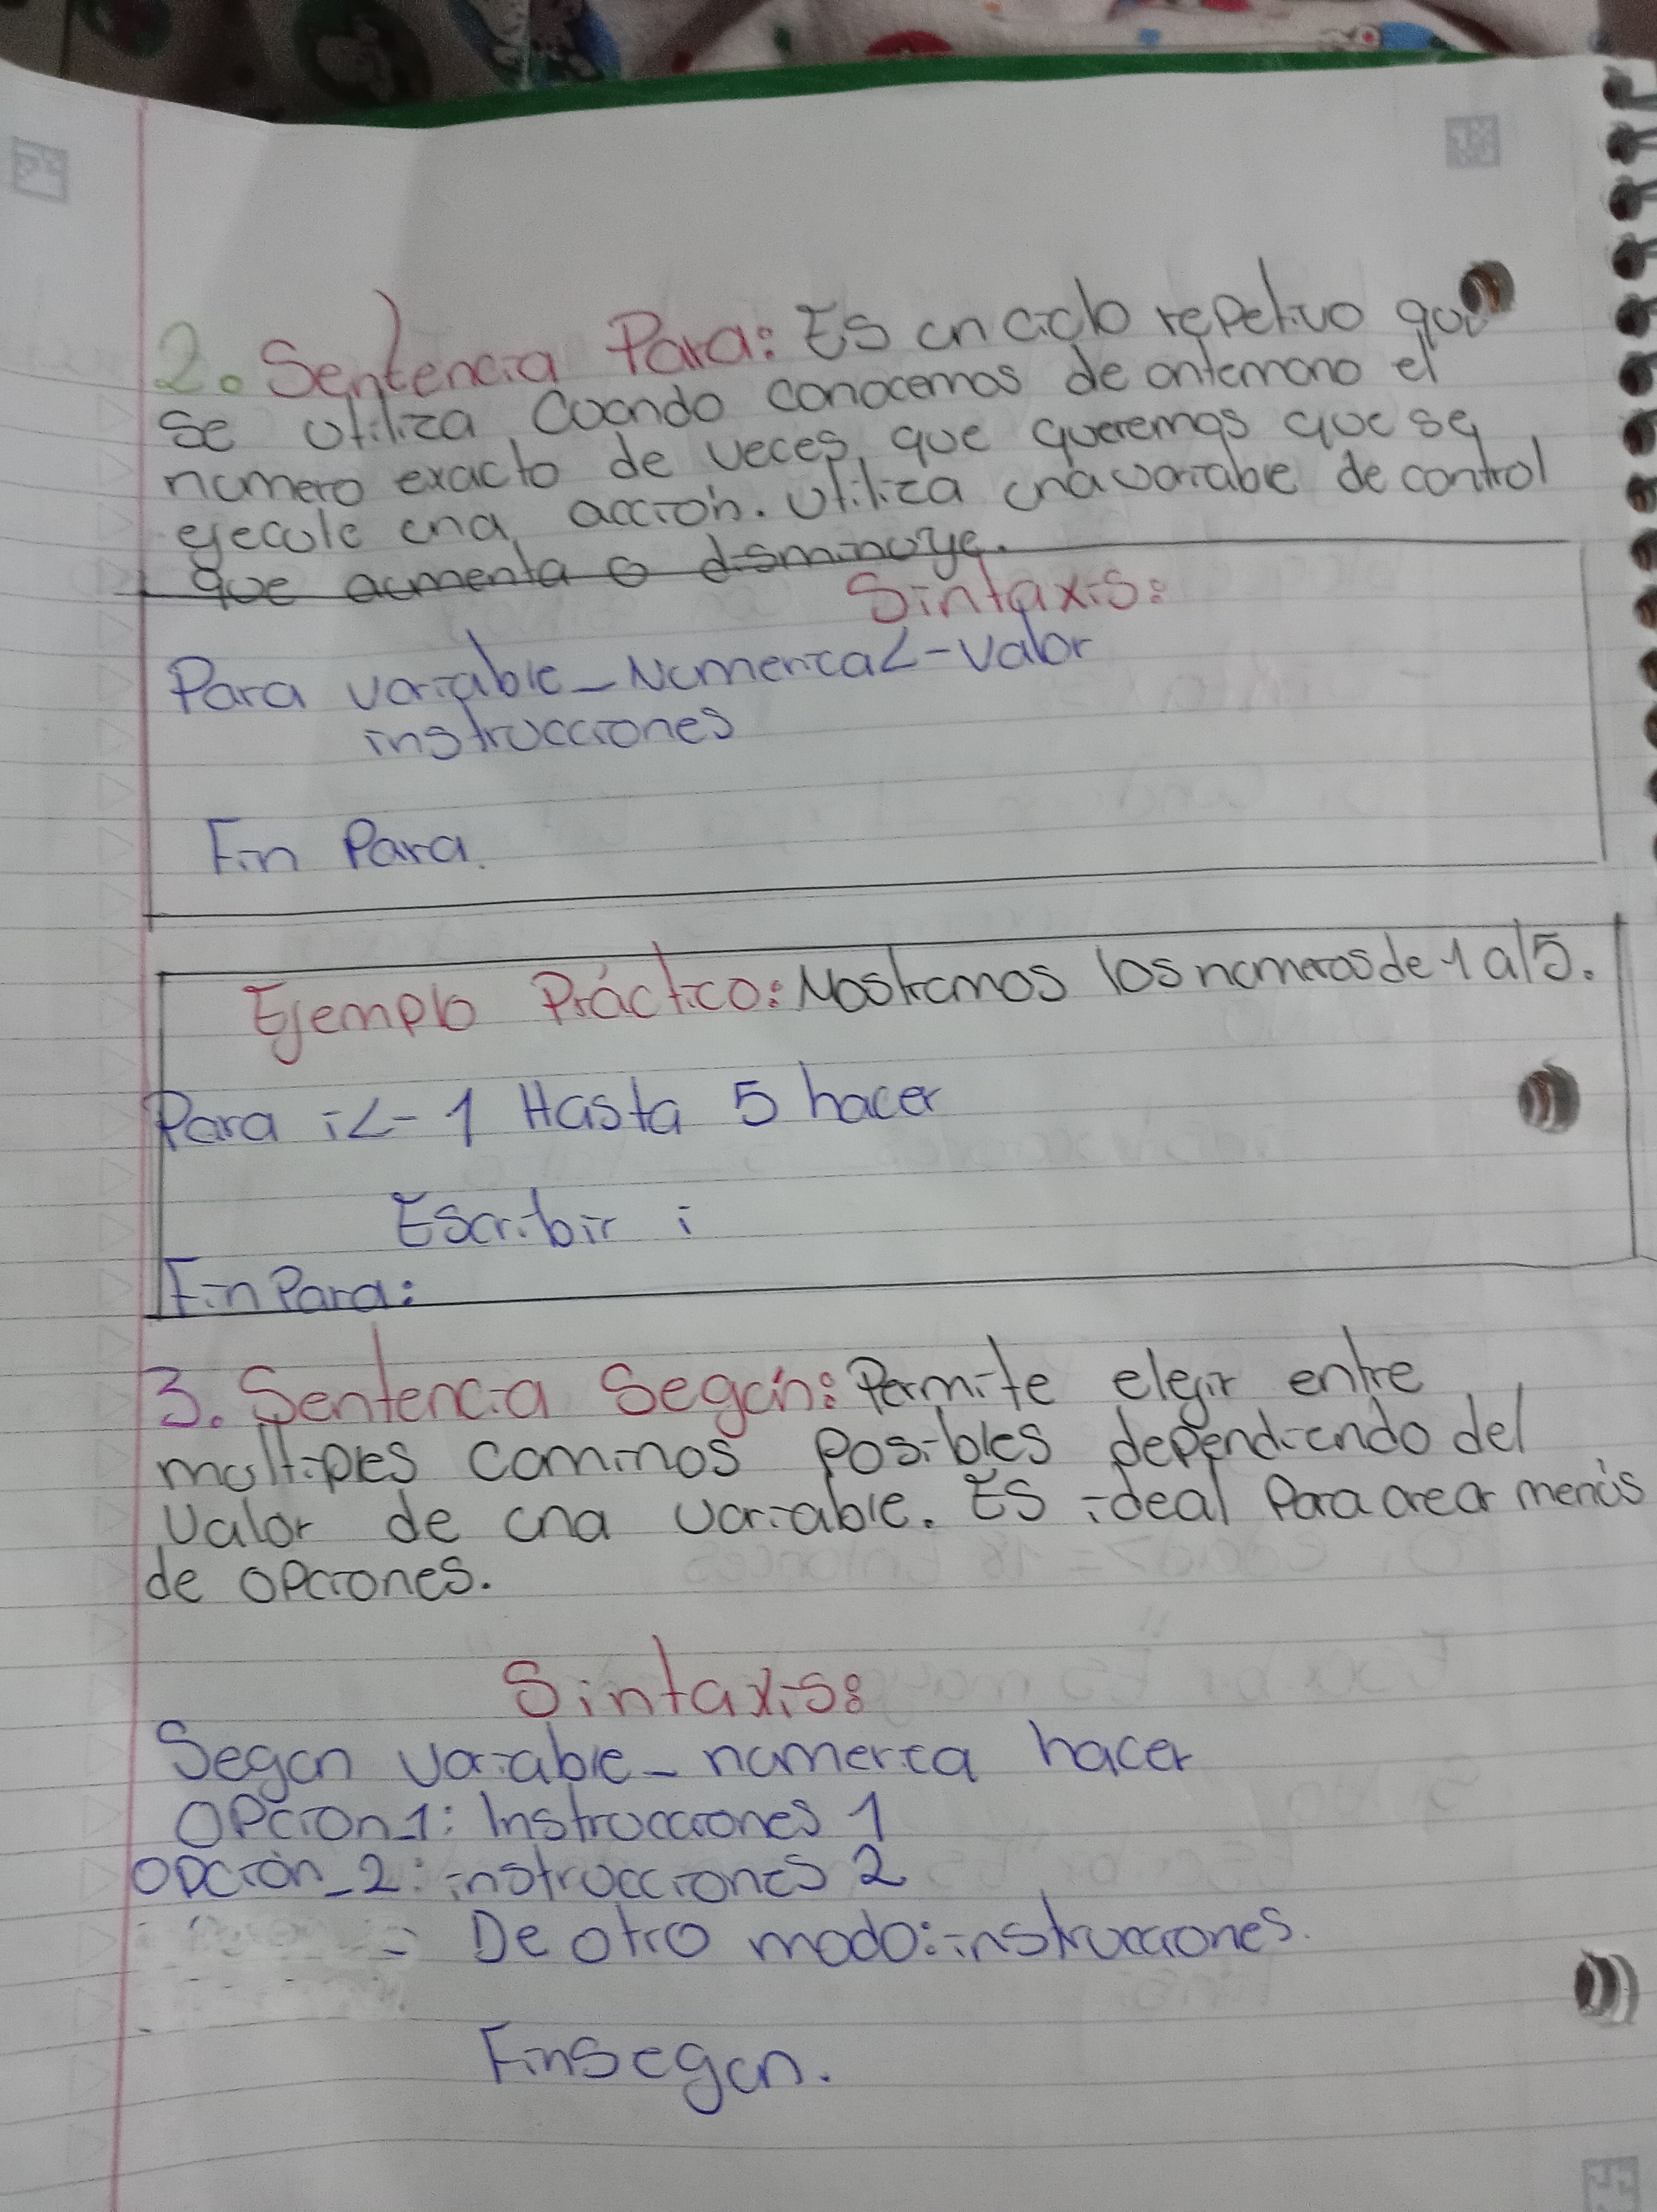 2. Sentencia Para: Es un ciclo repetivo que
se utiliza Cuando conocemos de antemano el
numero exacto de veces que queremos que se
ejecute una acción. Utiliza una variable de control
que aumenta o disminuye.
Sintaxis:
Para variable_Numerica<-Valor
instrucciones
Fin Para.
Ejemplo Práctico: Mostramos los numeros de 1 al 5.
Para i<-1 Hasta 5 hacer
Escribir i
Fin Para:
3. Sentencia Según: Permite elegir entre
multiples caminos posibles dependiendo del
Valor de una variable. Es ideal Para crear menús
de opciones.
Sintaxis:
Segun variable_numerica hacer
Opcion_1: Instrucciones 1
opción_2: instrucciones 2
De otro modo: instrucciones.
Finsegun.